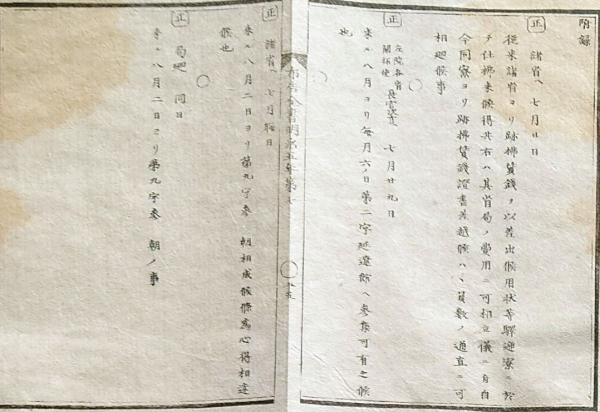 附録
正 諸省ヘ 七月廿日
從来諸省ヨリ跡拂賃錢ヲ以差出候用状等驛逓寮ニ於
テ仕拂来候得共右ハ其省局ノ費用ニ可相立儀ニ自
今同寮ヨリ跡拂賃錢證書差越候ハヽ員数ノ通直ニ可
相廻候事
正 左院各省
開拓使 長官 七月廿九日
来ル八月ヨリ毎月六ノ日第二字延遼館ヘ参集可有之候
也
布告全書明治五年第七
正 諸省ヘ 七月晦日
来ル八月二日ヨリ第九字参 朝相成候條為心得相達
候也
正 局廻 同日
来ル八月二日ヨリ第九字参 朝ノ事